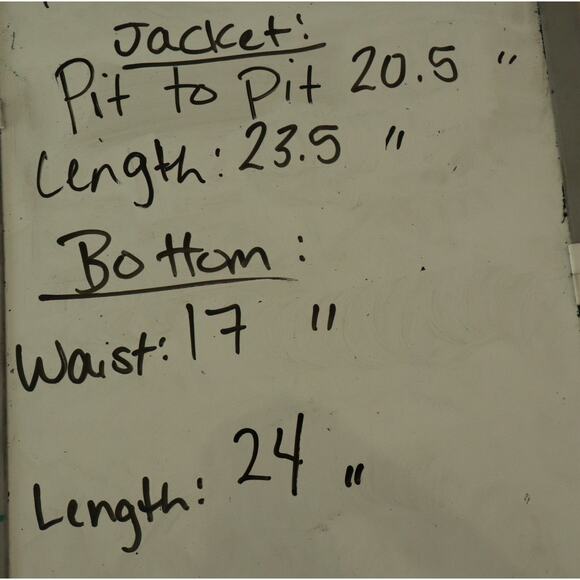 Jacket:
Pit to Pit 20.5 "
Length: 23.5 "
Bottom:
Waist: 17 "
Length: 24 "